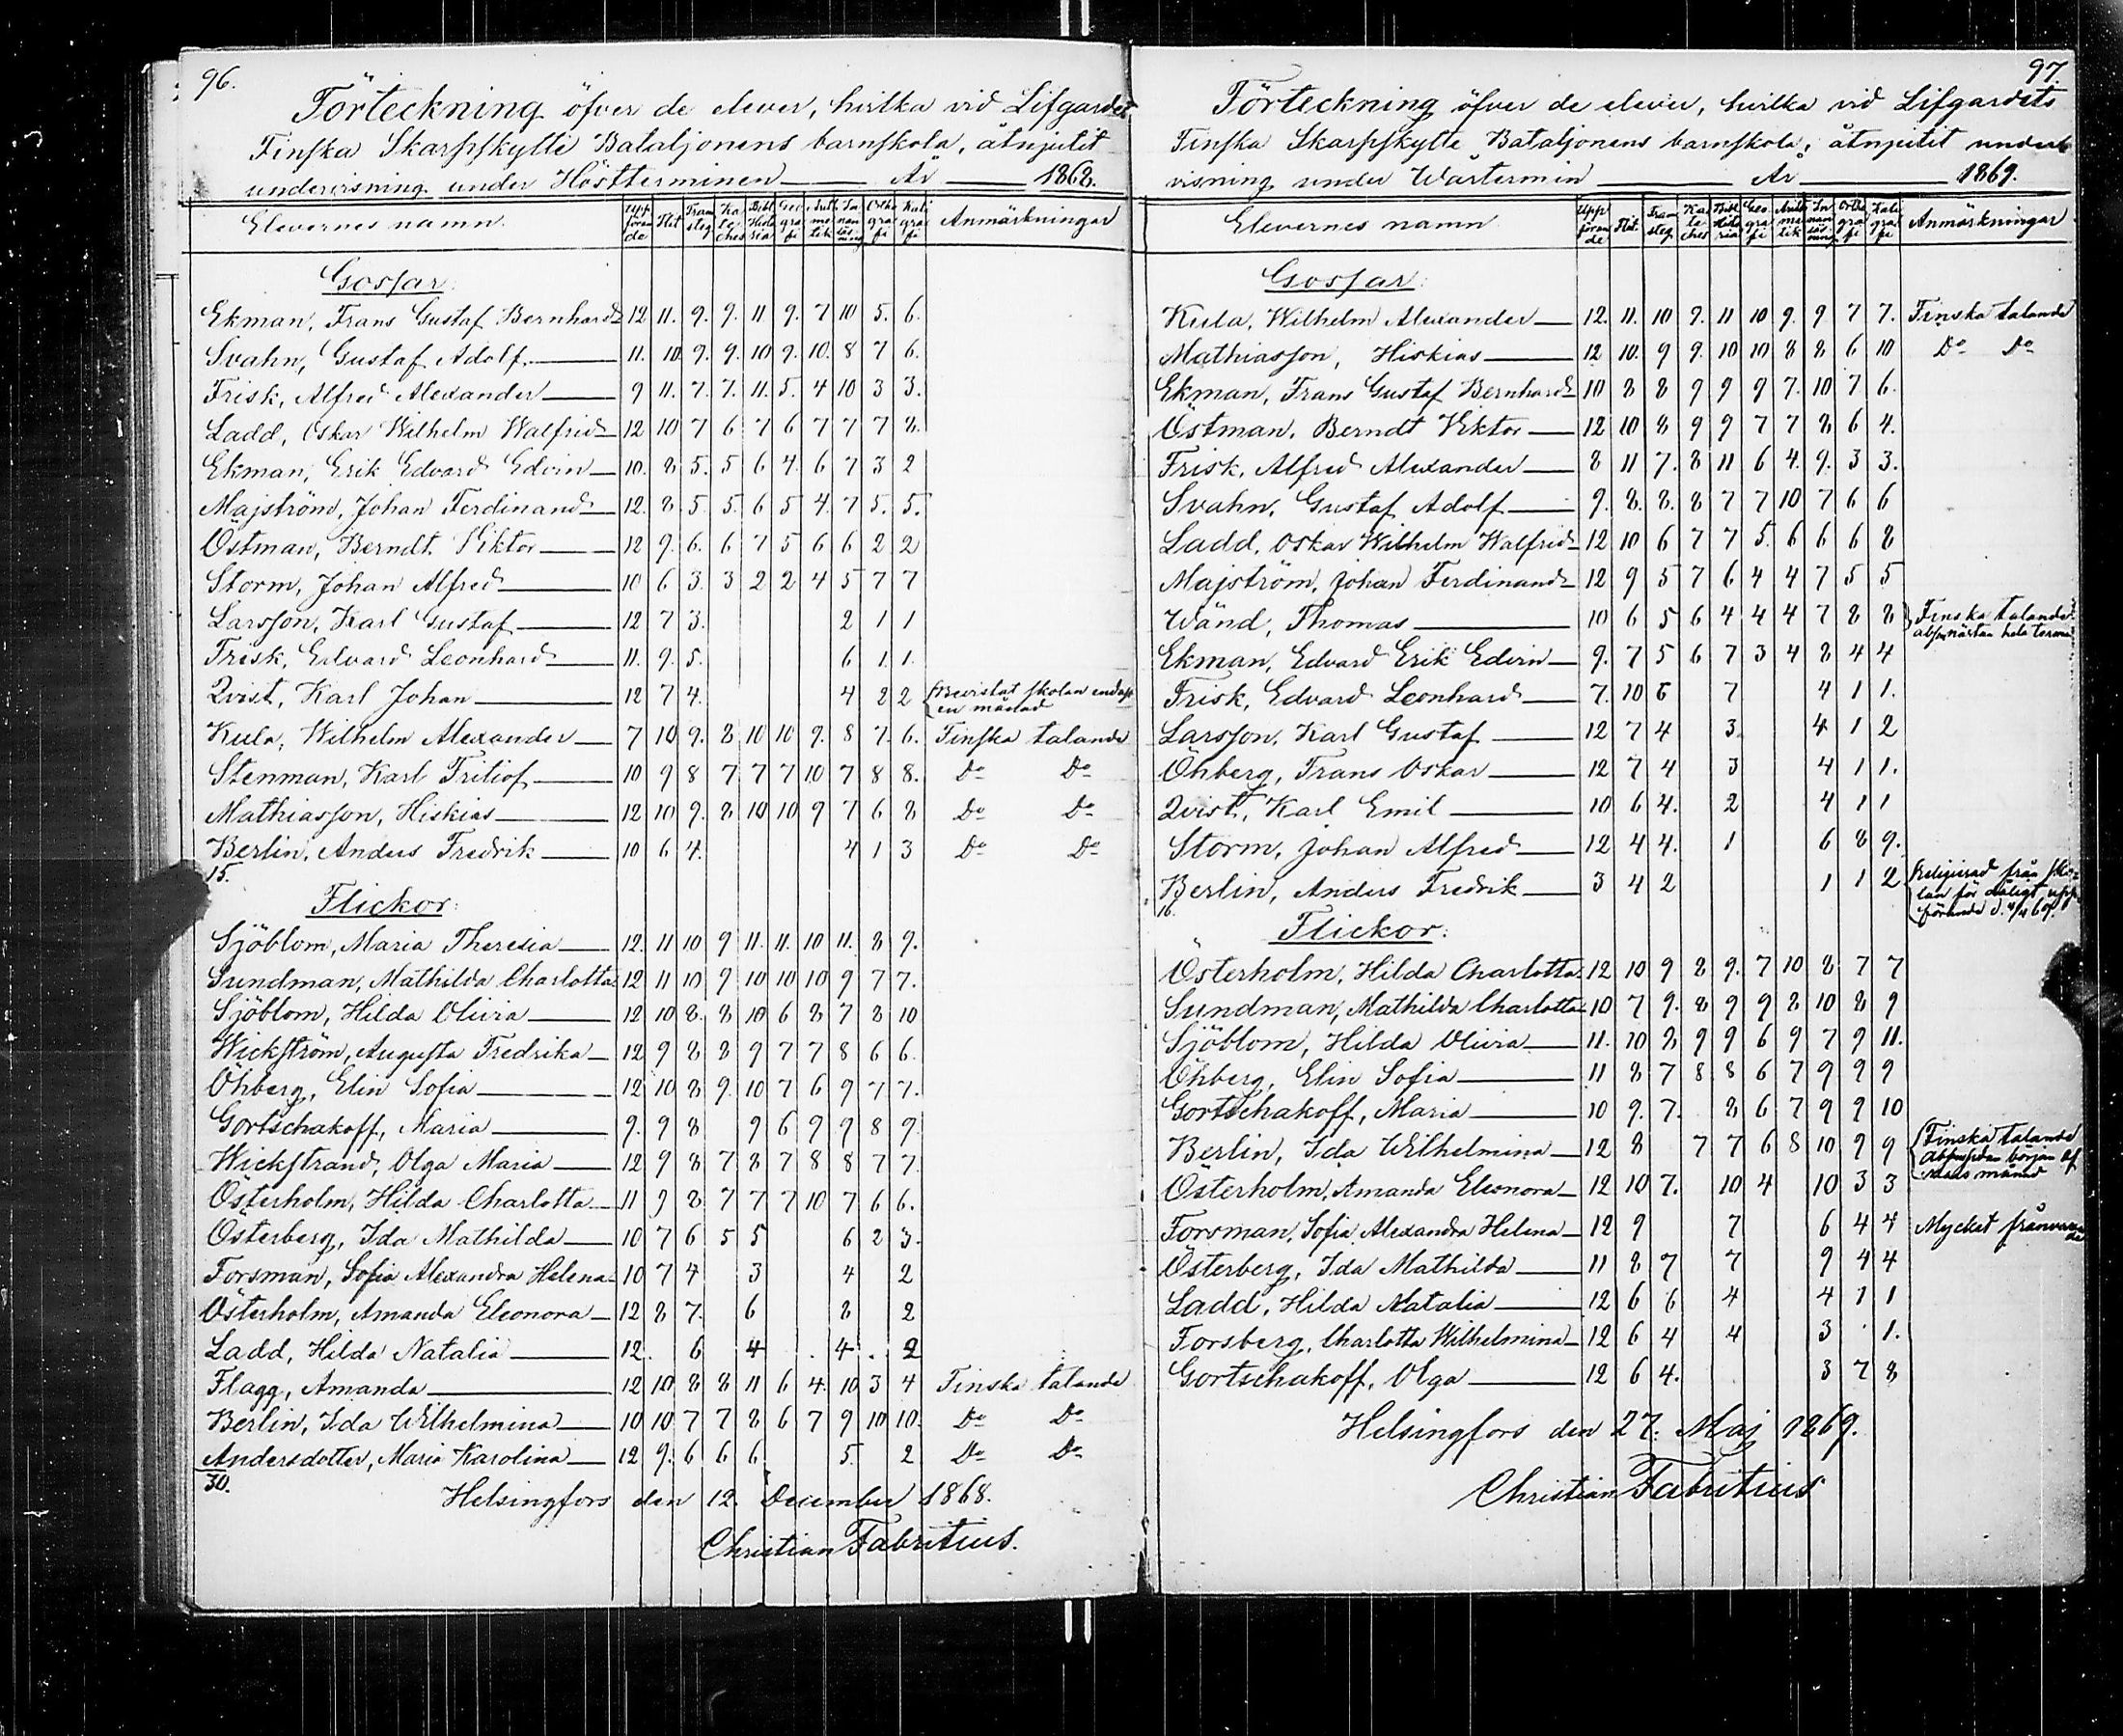 96.
Förteckning öfver de elever, hvilka vid Lifgardets
Finska Skarpskytte Bataljonens barnskola, åtnjutit
undervisning under Höstterminen — År — 1868.
Elevernes namn. Uppförande Flit Framsteg Kateches Bibl. Historia Geografi Aritmetik Innanläsning Ortografi Kaligrafi Anmärkningar
Gossar.
Ekman, Frans Gustaf Bernhard 12 11. 9. 9. 11 9. 7 10 5. 6.
Svahn, Gustaf Adolf. 11. 10. 9. 9. 10 9. 10. 8 7 6.
Frisk, Alfred Alexander 9 11. 7. 7. 11. 5. 4 10 3 3.
Ladd, Oskar Wilhelm Walfrid 12 10 7 6 7 6 7 7 7 8.
Ekman, Erik Edvard Edvin 10. 8 5. 5 6 4. 6 7 3 2
Majström, Johan Ferdinand 12. 8 5 5. 6 5 4. 7 5. 5.
Östman, Berndt Viktor 12 9. 6. 6 7 5 6 6 2 2
Storm, Johan Alfred 10 6 3. 3 2 2 4 5 7 7
Larsson, Karl Gustaf 12 7 3. 2 1 1
Frisk, Edvard Leonhard 11. 9. 5. 6 1. 1.
Qvist, Karl Johan 12 7 4. 4 2 2 Bevistat skolan endast
en månad
Kula, Wilhelm Alexander 7 10 9. 8 10 10 9. 8 7. 6. Finska talande
Stenman, Karl Fritiof 10 9 8 7 7 7 10 7 8 8. Do Do
Mathiasson, Hiskias 12 10 9. 8 10 10 9 7 6 8 Do Do
Berlin, Anders Fredrik 10 6 4. 4 1 3 Do Do
15.
Flickor.
Sjöblom, Maria Theresia 12. 11 10 9 11. 11. 10 11. 8 9.
Sundman, Mathilda Charlotta 12 11 10 9 10 10 10 9 7 7.
Sjöblom, Hilda Olivia 12 10 8. 8 10 6 8 7 8 10
Wickström, Augusta Fredrika 12 9 8 8 9 7 7 8 6 6.
Öhberg, Elin Sofia 12 10 8 9. 10 7 6 9 7 7.
Gortschakoff, Maria 9. 9 8 9 6 9 9 8 9
Wickstrand, Olga Maria 12 9 8 7 8 7 8 8 7 7
Österholm, Hilda Charlotta 11 9 8 7 7 7 10 7 6 6.
Österberg, Ida Mathilda 10 7 6 5 5 6 2 3.
Forsman, Sofia Alexandra Helena 10 7 4 3 4 2
Österholm, Amanda Eleonora 12 8 7. 6 8 2
Ladd, Hilda Natalia 12. 6 4 4 2
Flagg, Amanda 12 10 8 8 11 6 4. 10 3 4 Finska talande
Berlin, Ida Wilhelmina 10 10 7 7 8 6 7 9 10 10. Do Do
Andersdotter, Maria Karolina 12 9. 6 6 6 5 2 Do Do
30.
Helsingfors den 12. December 1868.
Christian Fabritius.
97.
Förteckning öfver de elever, hvilka vid Lifgardets
Finska Skarpskytte Bataljonens barnskola, åtnjutit under
visning under Wårtermin — År — 1869.
Elevernes namn Uppförande Flit. Framsteg Kateches Bibl. Historia Geografi Aritmetik Innanläsning Ortografi Kaligrafi Anmärkningar
Gossar.
Kula, Wilhelm Alexander 12. 11. 10 9. 11 10 9. 9 7 7. Finska talande
Mathiasson, Hiskias 12 10. 9 9. 10 10 8 8 6 10 Do Do
Ekman, Frans Gustaf Bernhard 10 8 8 9 9 9 7. 10 7 6.
Östman, Berndt Viktor 12 10 8 9 9 7 7 8 6 4.
Frisk, Alfred Alexander 8 11 7. 8 11 6 4. 9. 3 3.
Svahn, Gustaf Adolf 9. 8. 8. 8 7 7 10 7 6 6
Ladd, Oskar Wilhelm Walfrid 12 10 6 7 7 5. 6 6 6 8
Majström, Johan Ferdinand 12 9 5 7 6 4 4 7 5 5
Wänd, Thomas 10 6 5 6 4 4 4 7 8 8 Finska talande
nästan hela
Ekman, Edvard Erik Edvin 9. 7 5 6 7 3 4 8 4 4
Frisk, Edvard Leonhard 7. 10 6 7 4 1 1.
Larsson, Karl Gustaf 12 7 4 3. 4 1 2
Öhberg, Frans Oskar 12 7 4 3 4 1 1.
Qvist, Karl Emil 10 6 4. 2 4 1 1
Storm, Johan Alfred 12 4 4. 1 6 8 9.
Berlin, Anders Fredrik 3 4 2 1 1 2 Religierad från sko-
lan för dåligt upp-
förande d.
16.
Flickor.
Österholm, Hilda Charlotta 12 10 9 8 9. 7 10 8 7 7
Sundman, Mathilda Charlotta 10 7 9. 8 9 9 8 10 8 9
Sjöblom, Hilda Olivia 11. 10 8 9 9 6 9 7 9 11.
Öhberg, Elin Sofia 11 8 7 8 8 6 7 9 9 9
Gortschakoff, Maria 10 9. 7. 8 6 7 9 9 10
Berlin, Ida Wilhelmina 12 8 7 7 6 8 10 9 9 Finska talande
början af
månad
Österholm, Amanda Eleonora 12 10 7. 10 4 10 3 3
Forsman, Sofia Alexandra Helena 12 9 7 6 4 4 Mycket frånvarande
Österberg, Ida Mathilda 11 8 7 7 9 4 4
Ladd, Hilda Natalia 12 6 6 4 4 1 1
Forsberg, Charlotta Wilhelmina 12 6 4 4 3 1.
Gortschakoff, Olga 12 6 4. 3 7 8
Helsingfors den 27. Maj 1869.
Christian Fabritius